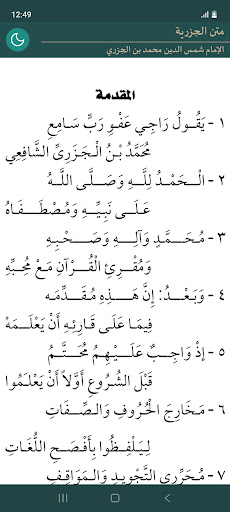 12:49
متن الجزرية
الإمام شمس الدين محمد بن الجزري
المقدمة
١ - يَقُولُ رَاجِي عَفْوِ رَبٍّ سَامِعِ
مُحَمَّدُ بْنُ الْجَزَرِيِّ الشَّافِعِي
٢ - الْحَمْدُ لِلَّهِ وَصَلَّى اللَّهُ
عَلَى نَبِيِّهِ وَمُصْطَفَاهُ
٣ - مُحَمَّدٍ وَآلِهِ وَصَحْبِهِ
وَمُقْرِئِ الْقُرْآنِ مَعْ مُحِبِّهِ
٤ - وَبَعْدُ: إِنَّ هَذِهِ مُقَدِّمَه
فِيمَا عَلَى قَارِئِهِ أَنْ يَعْلَمَهْ
٥ - إذْ وَاجِبٌ عَلَيْهِمُ مُحَتَّمُ
قَبْلَ الشُّرُوعِ أَوَّلاً أَنْ يَعْلَمُوا
٦ - مَخَارِجَ الْحُرُوفِ وَالصِّفَاتِ
لِيَلْفِظُوا بِأَفْصَحِ اللُّغَاتِ
٧ - مُحَرِّرِي التَّجْوِيدِ وَالمَوَاقِفِ